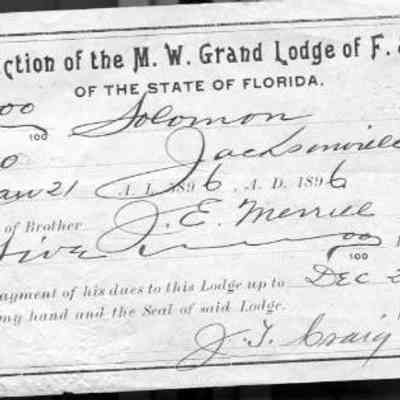 ction of the M. W. Grand Lodge of F. &
OF THE STATE OF FLORIDA.
00 Solomon
100
o Jacksonville
Jan 21 A. L. 1896, A. D. 1896
of Brother J. E. Merrill
Five 00
100
ayment of his dues to this Lodge up to Dec 2
my hand and the Seal of said Lodge.
J. T. Craig